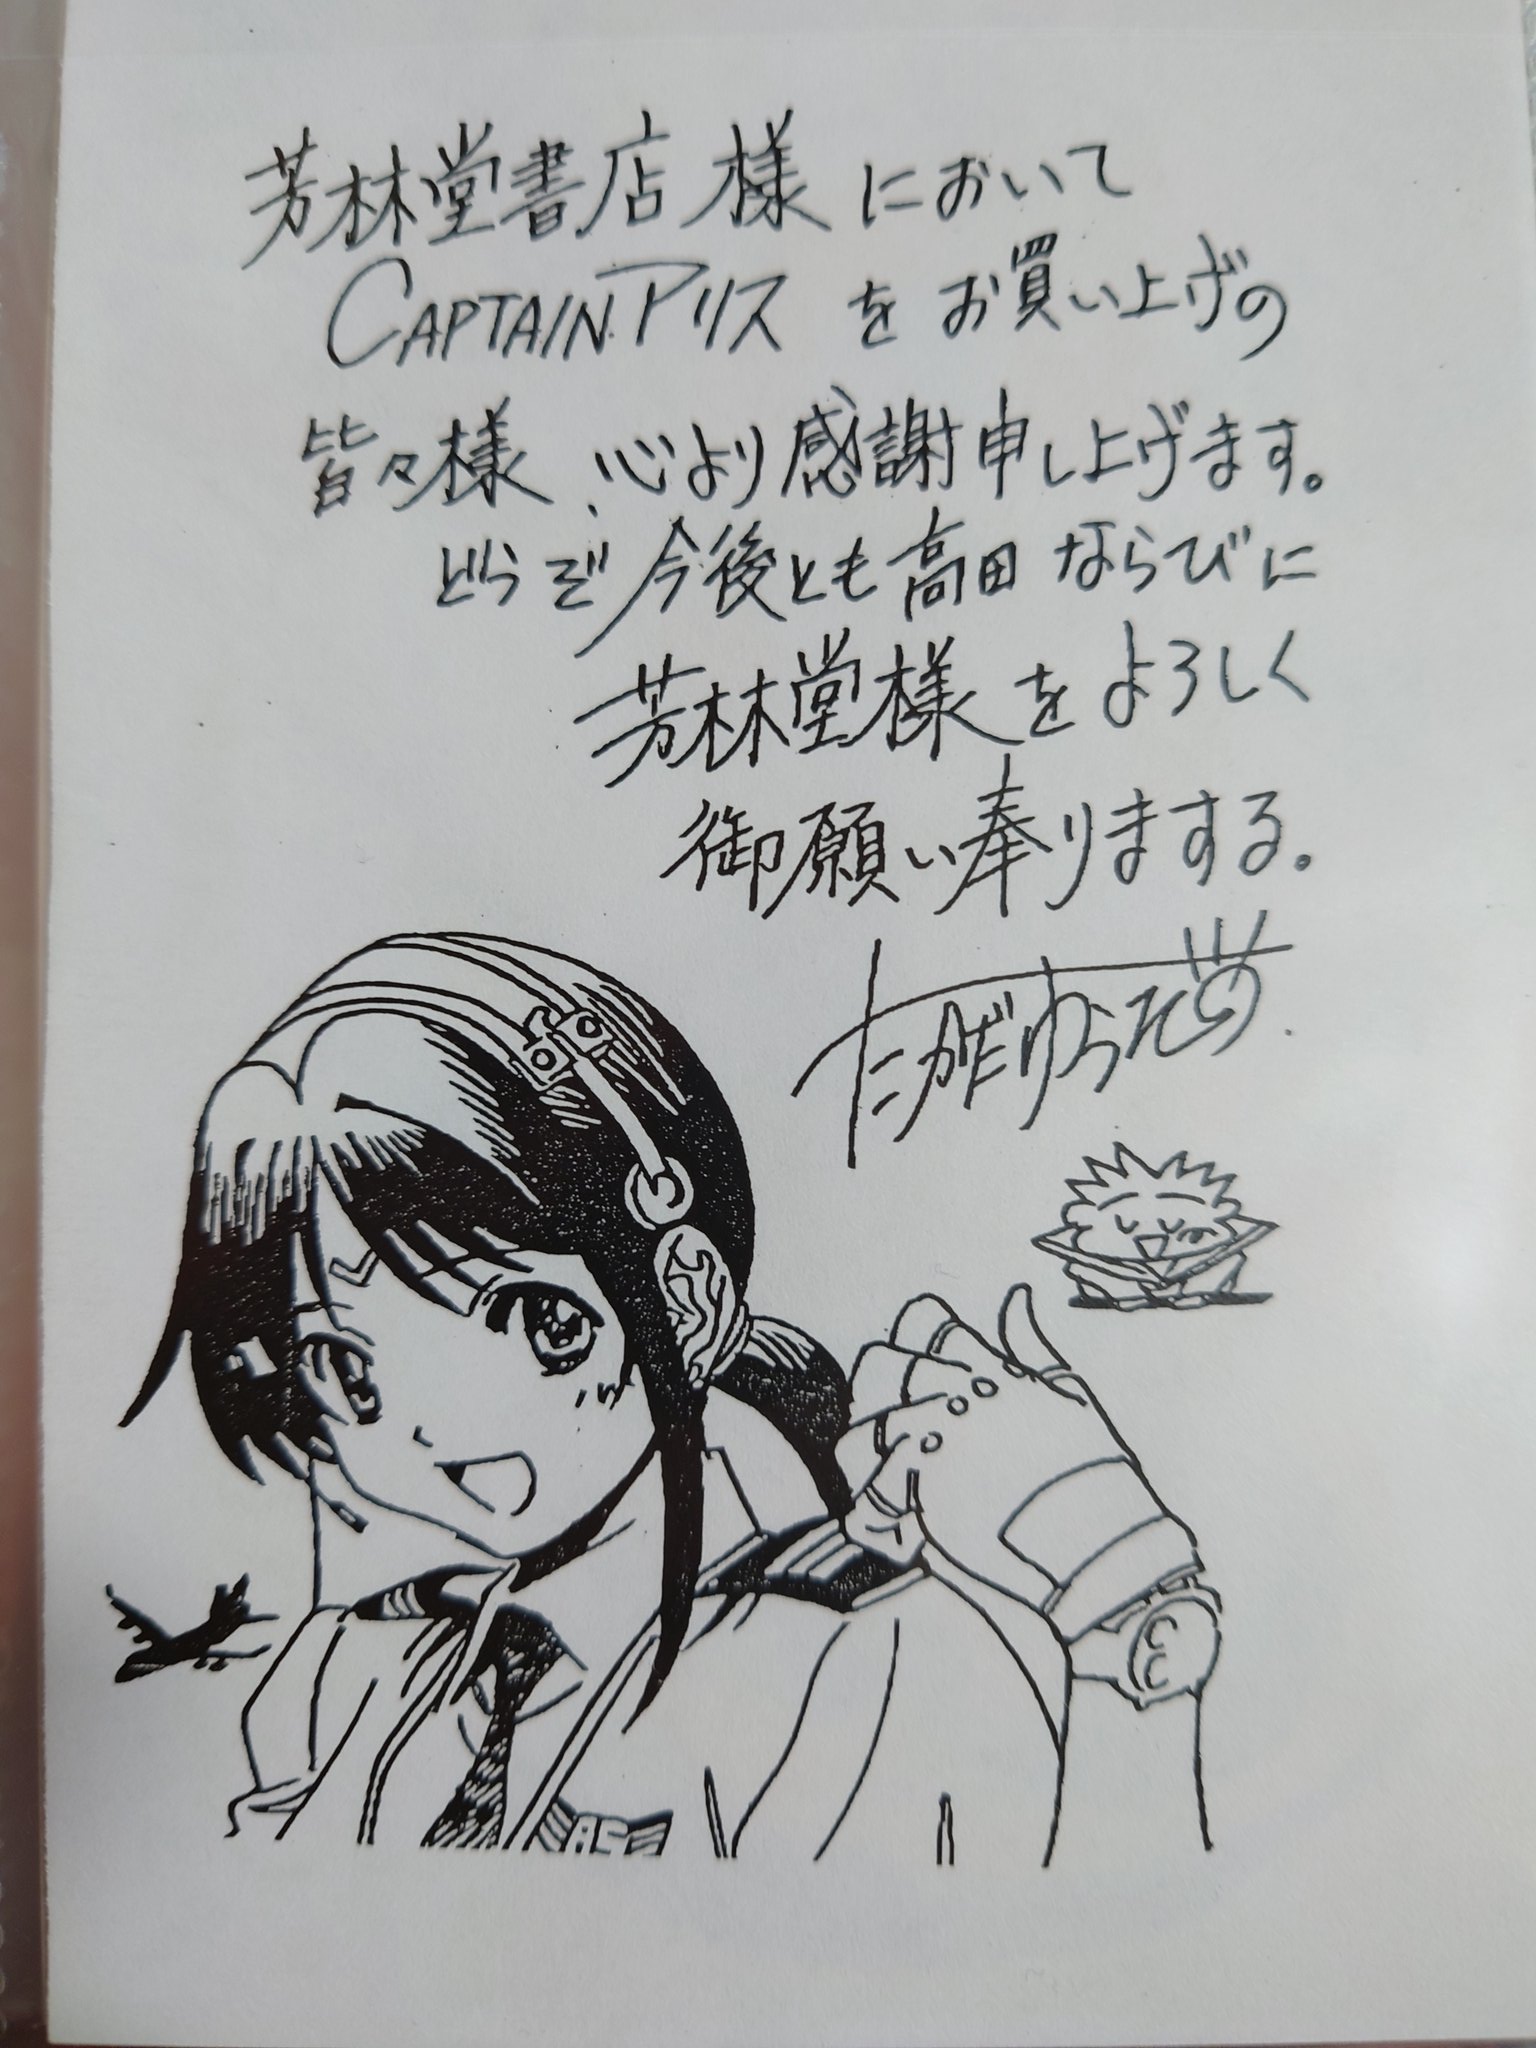 芳林堂書店様において
CAPTAINアリスをお買い上げの
皆々様、心より感謝申し上げます。
どうぞ今後とも高田ならびに
芳林堂様をよろしく
御願い奉りまする。
たかだゆうぞう